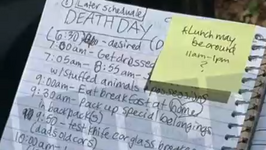 ① Later schedule
DEATH DAY
6:30 - desired
7:00am - Get dressed
7:05am - 8:55am -
w/stuffed animals
9:00am - Eat breakfast at home
9:30am - Pack up special belongings
in backpack(s)
9:50 - test knife car glass
(dads old car)
10:00am
* Lunch may
be around
11am-1pm
?